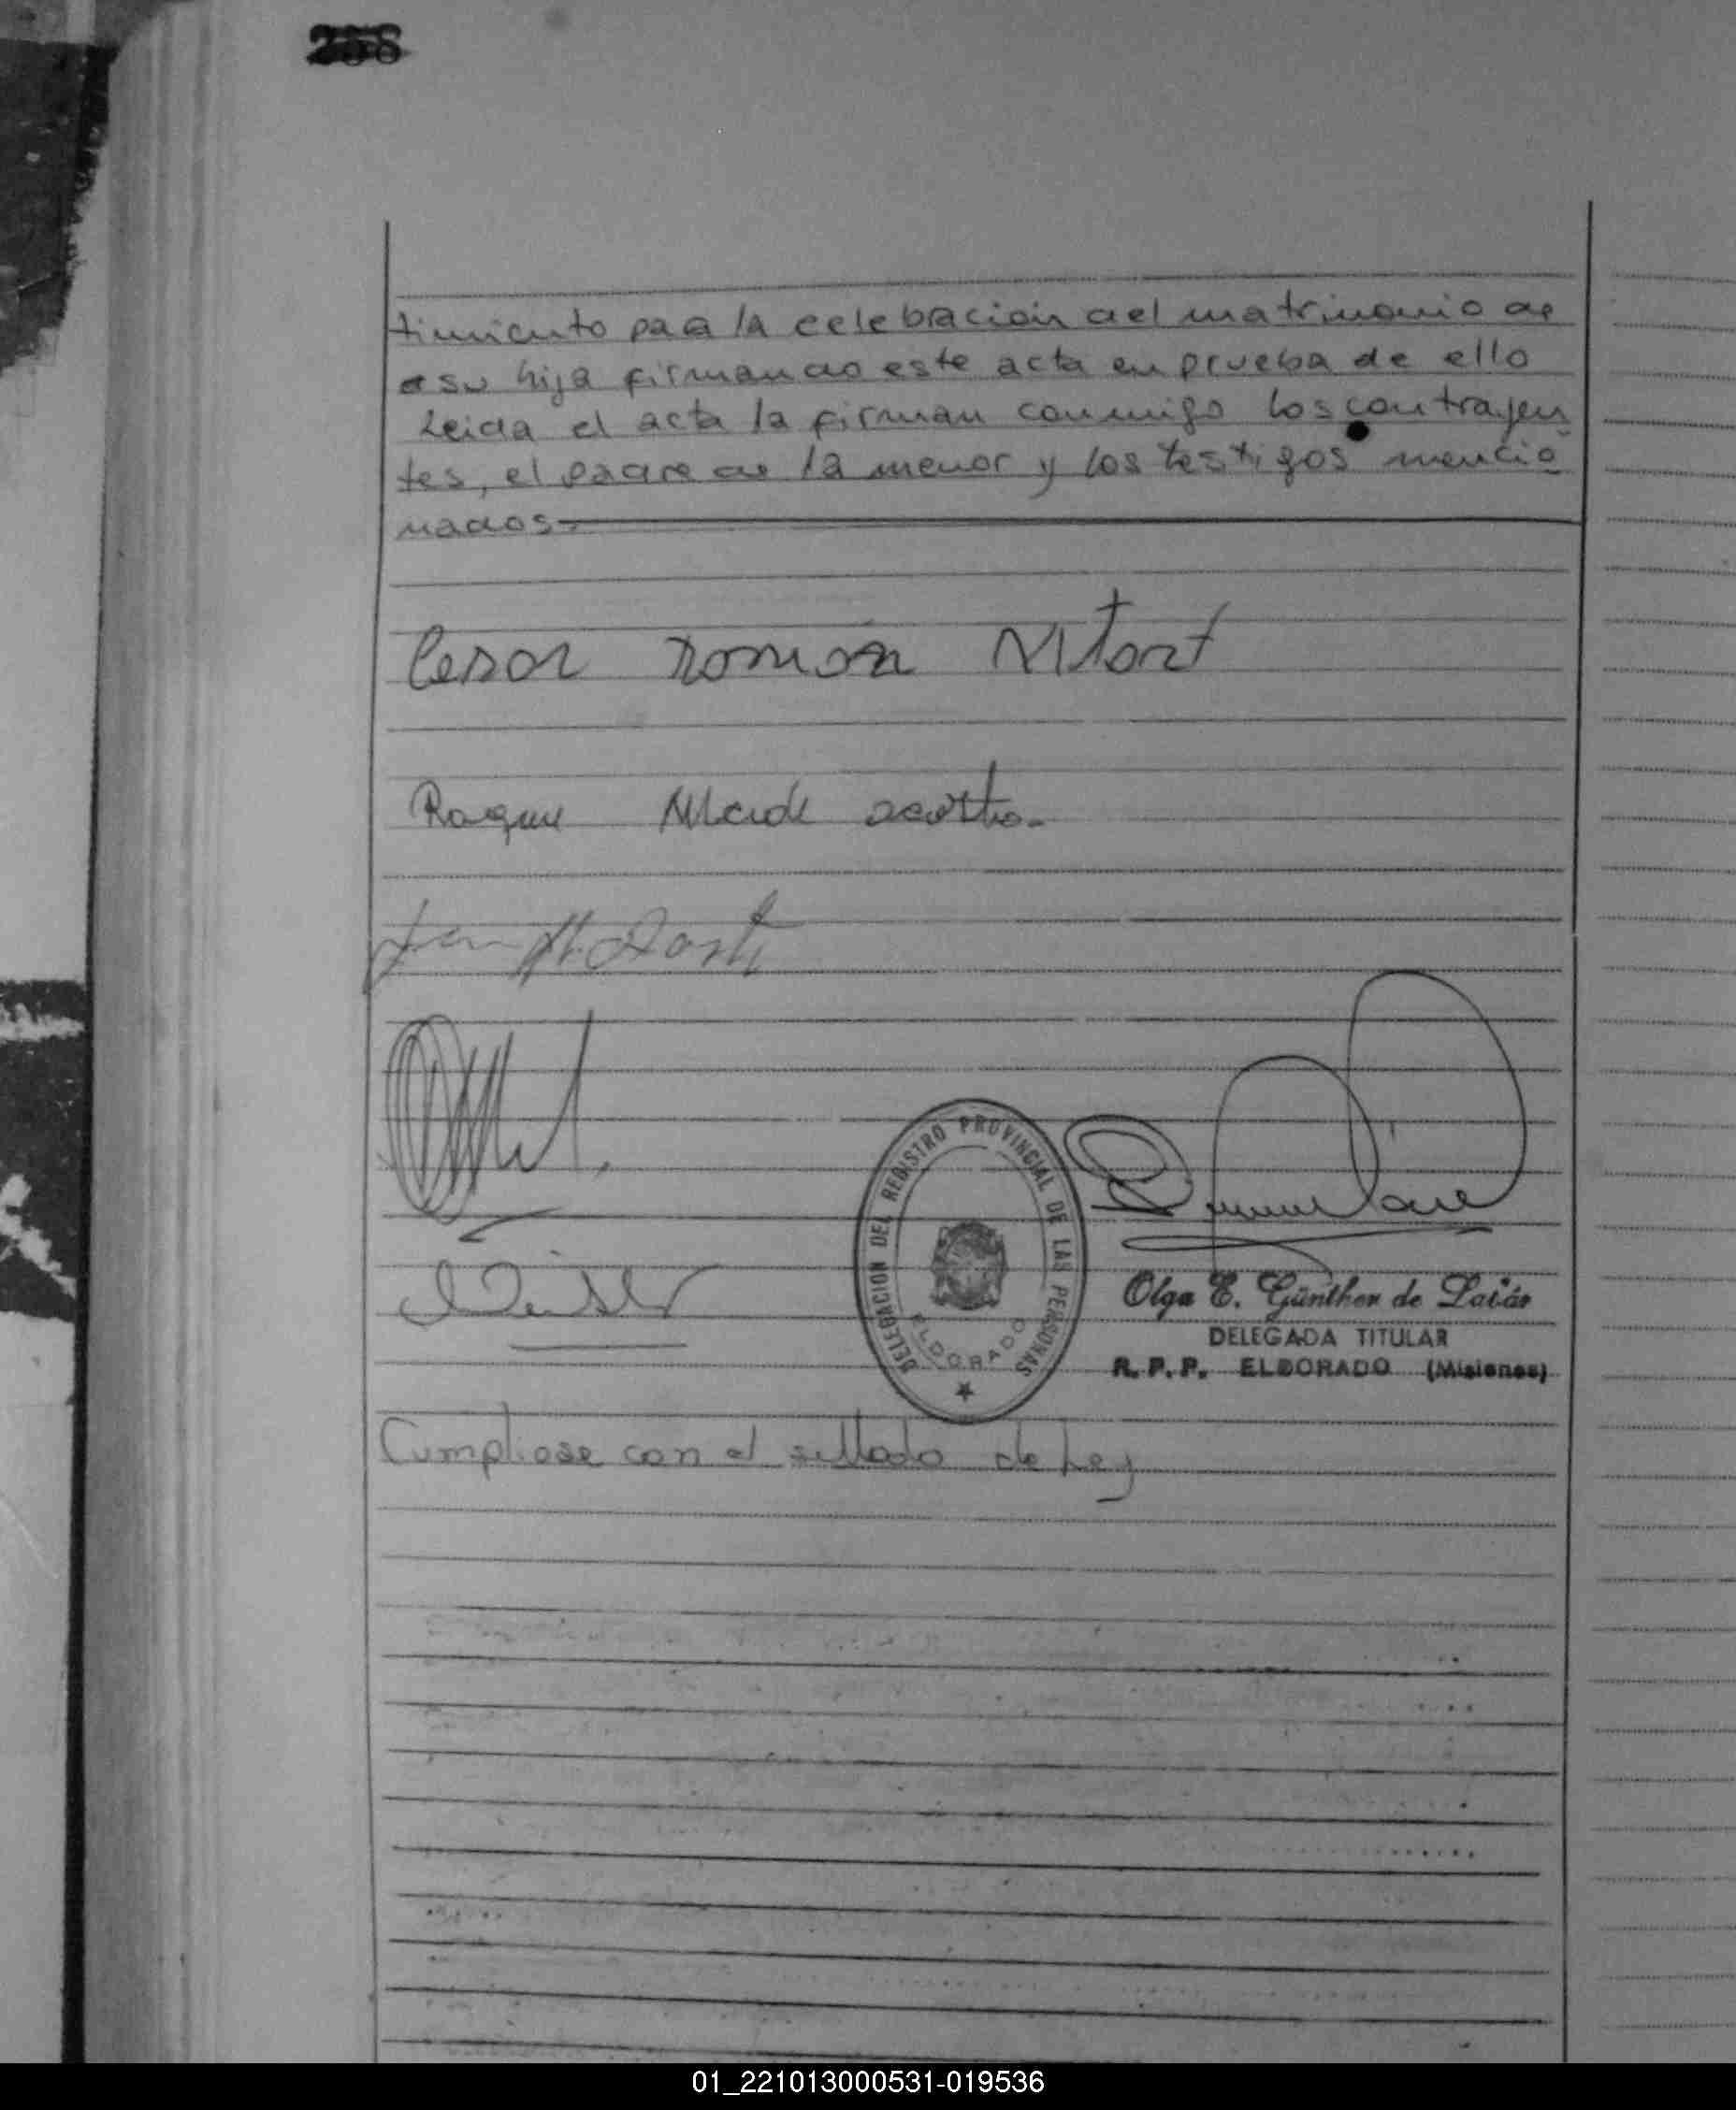 258
timiento para la celebracion del matrimonio de
a su hija firmando este acta en prueba de ello
Leida el acta la firman conmigo los contrayen
tes, el padre de la menor y los testigos mencio
nados-
Cesar Román
Acosta.
DELEGACION DEL REGISTRO PROVINCIAL DE LAS PERSONAS
ELDORADO
Olga E. Günther de
DELEGADA TITULAR
R. P. P. ELDORADO (Misiones)
Cumpliose con el sellado de Ley
01_221013000531-019536